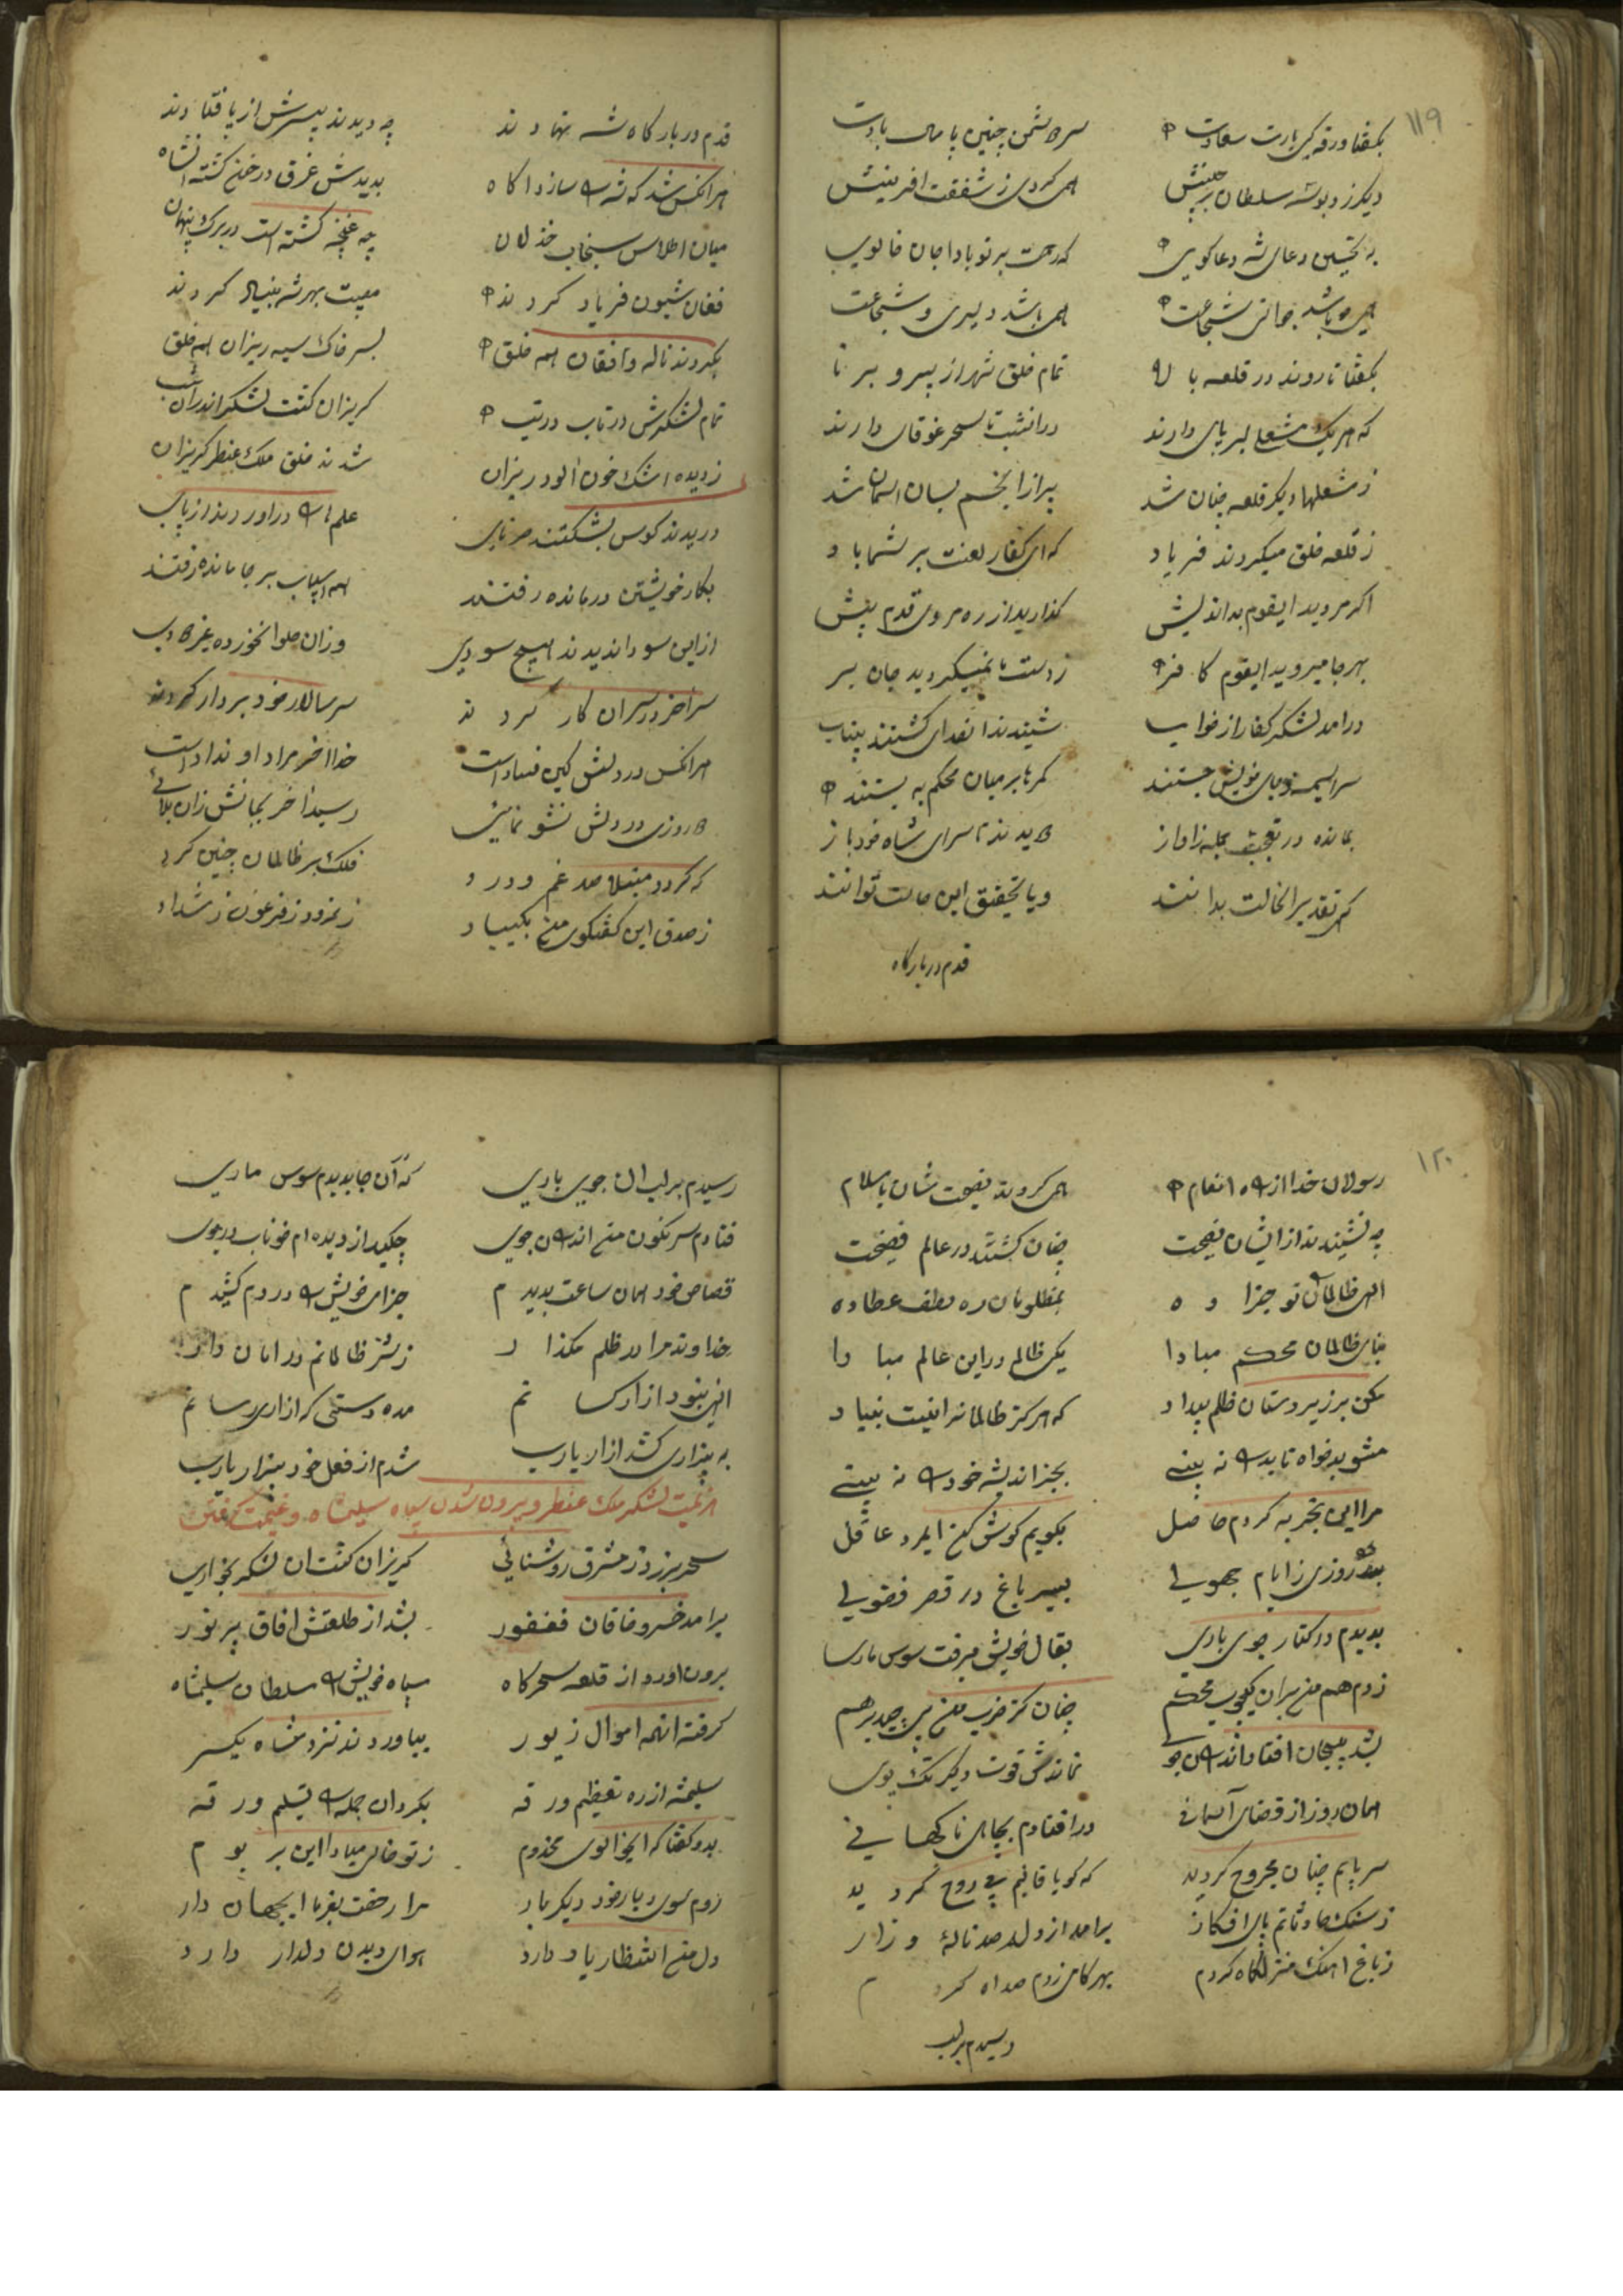 ۱۱۹
بگفتا ورقه کی یارت سعادت سر دشمن چنین پامال بادت
دیگر زد بوسه سلطان بر جبینش همی کردی ز شفقت آفرینش
به تحسین دعای شه دعاگوی که رحمت بر تو بادا جان خالوی
همی باشد جوانی شجاعت همی باشد دلیری و شجاعت
بگفتا تا روند در قلعه بالا تمام خلق شهر از پیر و برنا
که هر یک مشعلی بر پای دارند در انشب تا سحر غوغای دارند
ز مشعلها دیگر قلعه چنان شد پر از انجم بسان اسمان شد
ز قلعه خلق میکردند فریاد که ای کفار لعنت بر شما باد
اگر مردید ایقوم بداندیش گذارید از ره مردی قدم پیش
بهر جا میروید ایقوم کافر ز دست ما نمیگردید جان بر
درامد لشکر کفار از خواب شنیدند انصدای گشتند بیتاب
سراسیمه ز جای خویش جستند کمرها بر میان محکم به بستند
بمانده در تعجب جمله زاواز دویدند تا سرای شاه خود باز
کی تقدیر انحالت بدانند و یا تحقیق این حالت توانند
قدم در بارگاه
قدم در بارگاه شه نهادند چه دیدند پیسرش از پا فتادند
هرانکس شد که شه را سازد اگاه بدیدش غرق در خون گشته انشاه
میان اطلاس سنجاب خذلان چه غنچه گشته است در برگ پنهان
فغان شیون فریاد کردند مصیبت بهر شه بنیاد کردند
بکردند ناله و افغان همه خلق بسر خاک سیه ریزان همه خلق
تمام لشکرش در تاب در تب گریزان گشت لشکر اندران شب
ز دیده اشک خون الود ریزان شدند خلق ملک عنطر گریزان
دریدند کوس بشکستند سرنای علمها را دراوردند از پای
بکار خویشتن درمانده رفتند همه اسباب بر جا مانده رفتند
از این سودا ندیدند هیچ سودی وزان حلوا نخورده غیر دودی
سر اخر در سر ان کار کردند سر سالار خود بر دار کردند
هرانکس در دلش کین فساد است خدا اخر مراد او نداد است
دو روزی در دلش نشو نمائی رسید اخر بجانش زان بلائی
که گردد مبتلا صد غم و درد فلک بر ظالمان چنین کرد
ز صدق این گفتگوی من بکن یاد ز نمرود ز فرعون ز شداد
۱۲۰
رسولان خدا از راه انعام همی کردند نصیحتشان باسلام
چه نشنیدند از ایشان نصیحت چنان گشتند در عالم فضیحت
الهی ظالمان را تو جزا ده بمظلومان ره لطف عطا ده
بنای ظالمان محکم مبادا یکی ظالم در این عالم مبادا
مکن بر زیردستان ظلم بیداد که هرگز ظالمانرا نیست بنیاد
مشو بدخواه تا بد را نه بینی بجز اندیشه خود را نه بینی
مرا این تجربه کردم حاصل بگویم گوش کن ایمرد عاقل
بدو روزی ز ایام جهولی بسیر باغ در قصر فضولی
بدیدم در کنار جوی باری بقال خویش میرفت سوس ماری
زدم هم من بران یکچوب محکم چنان کز ضرب من پیچید برهم
بشد پیچان افتاد اندران جوی نماندش قوت دیگر تک پوی
همان روز از قضای آسمانی درافتادم بجای ناگهانی
سر پایم چنان مجروح گردید که گویا قالبم بی روح گردید
ز سنگ حادثاتم پای افکار برامد از دلم صد ناله و زار
ز باغ اهنگ منزلگاه کردم بهر گامی زدم صد اه کردم
رسیدم بر لب
رسیدم بر لب ان جوی باری که آن جا بدیدم سوس ماری
فتادم سرنگون من اندران جوی چکید از دیده ام خوناب در جوی
قصاص خود همان ساعت بدیدم جزای خویش را در دم کشیدم
خداوندا مرا در ظلم مگذار ز شر ظالمانم در امان دار
الهی نبود ازار کسانم مده دستی که ازاری رسانم
به بیزاری کشد ازار یارب شدم از فعل خود بیزار یارب
هزیمت لشکر ملک عنطر و بیرون شدن سپاه سلیمشاه و غنیمت گرفتن
سحر بر زد ز مشرق روشنائی گریزان گشت ان لشکر بخواری
برامد خسرو خاقان فغفور بشد از طلعتش افاق پر نور
برون اورد از قلعه سحرگاه سپاه خویش را سلطان سلیمشاه
گرفته انهمه اموال زیور بیاوردند نزد شاه یکسر
سلیمشه از ره تعظیم ورقه بکرد ان جمله را تسلیم ورقه
بدو گفتا که ایخالوی مخدوم ز تو خالی مبادا این بر و بوم
روم سوی دیار خود دیگر بار مرا رخصت بفرما ایجهان دار
دل من انتظار یار دارد هوای دیدن دلدار دارد